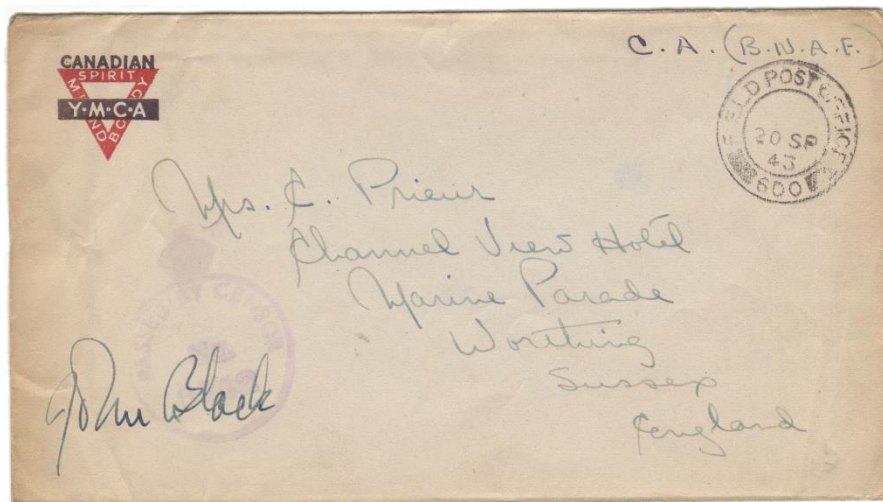 CANADIAN
SPIRIT
MIND
BODY
Y·M·C·A
C.A. (B.N.A.F.)
FIELD POST OFFICE
20 SP
43
600
Mrs. C. Prieur
Channel View Hotel
Marine Parade
Worthing
Sussex
England
PASSED BY CENSOR
John Black